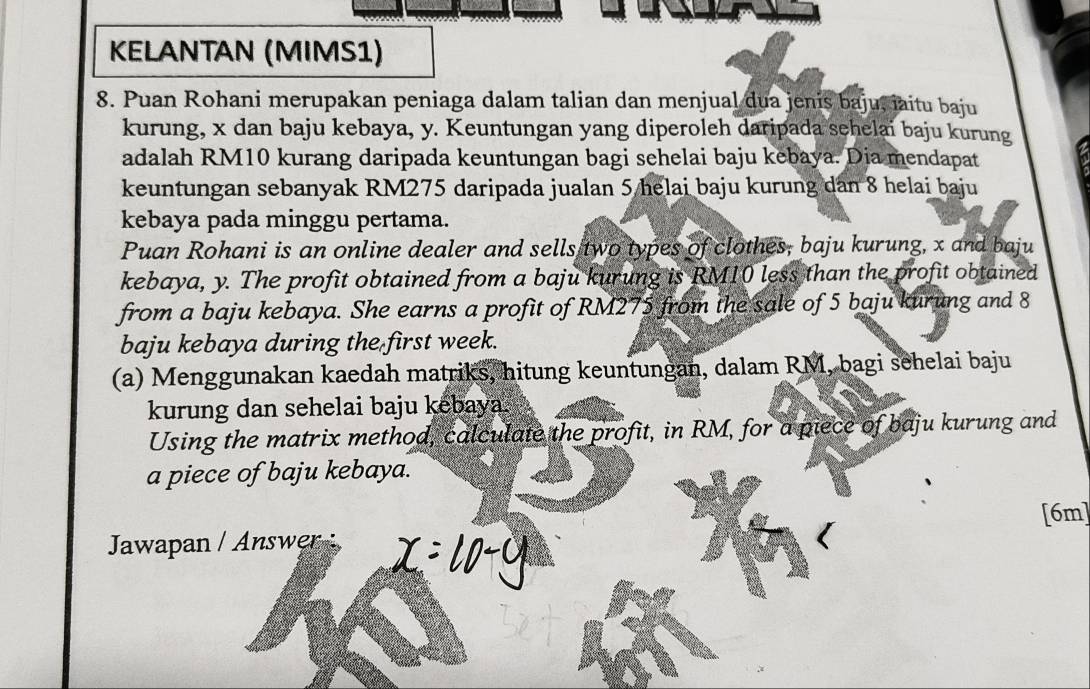 KELANTAN (MIMS1)
8. Puan Rohani merupakan peniaga dalam talian dan menjual dua jenis baju, iaitu baju
kurung, x dan baju kebaya, y. Keuntungan yang diperoleh daripada sehelai baju kurung
adalah RM10 kurang daripada keuntungan bagi sehelai baju kebaya. Dia mendapat
keuntungan sebanyak RM275 daripada jualan 5 helai baju kurung dan 8 helai baju
kebaya pada minggu pertama.
Puan Rohani is an online dealer and sells two types of clothes, baju kurung, x and baju
kebaya, y. The profit obtained from a baju kurung is RM10 less than the profit obtained
from a baju kebaya. She earns a profit of RM275 from the sale of 5 baju kurung and 8
baju kebaya during the first week.
(a) Menggunakan kaedah matriks, hitung keuntungan, dalam RM, bagi sehelai baju
kurung dan sehelai baju kebaya.
Using the matrix method, calculate the profit, in RM, for a piece of baju kurung and
a piece of baju kebaya.
[6m]
Jawapan / Answer :
x = 10 - y